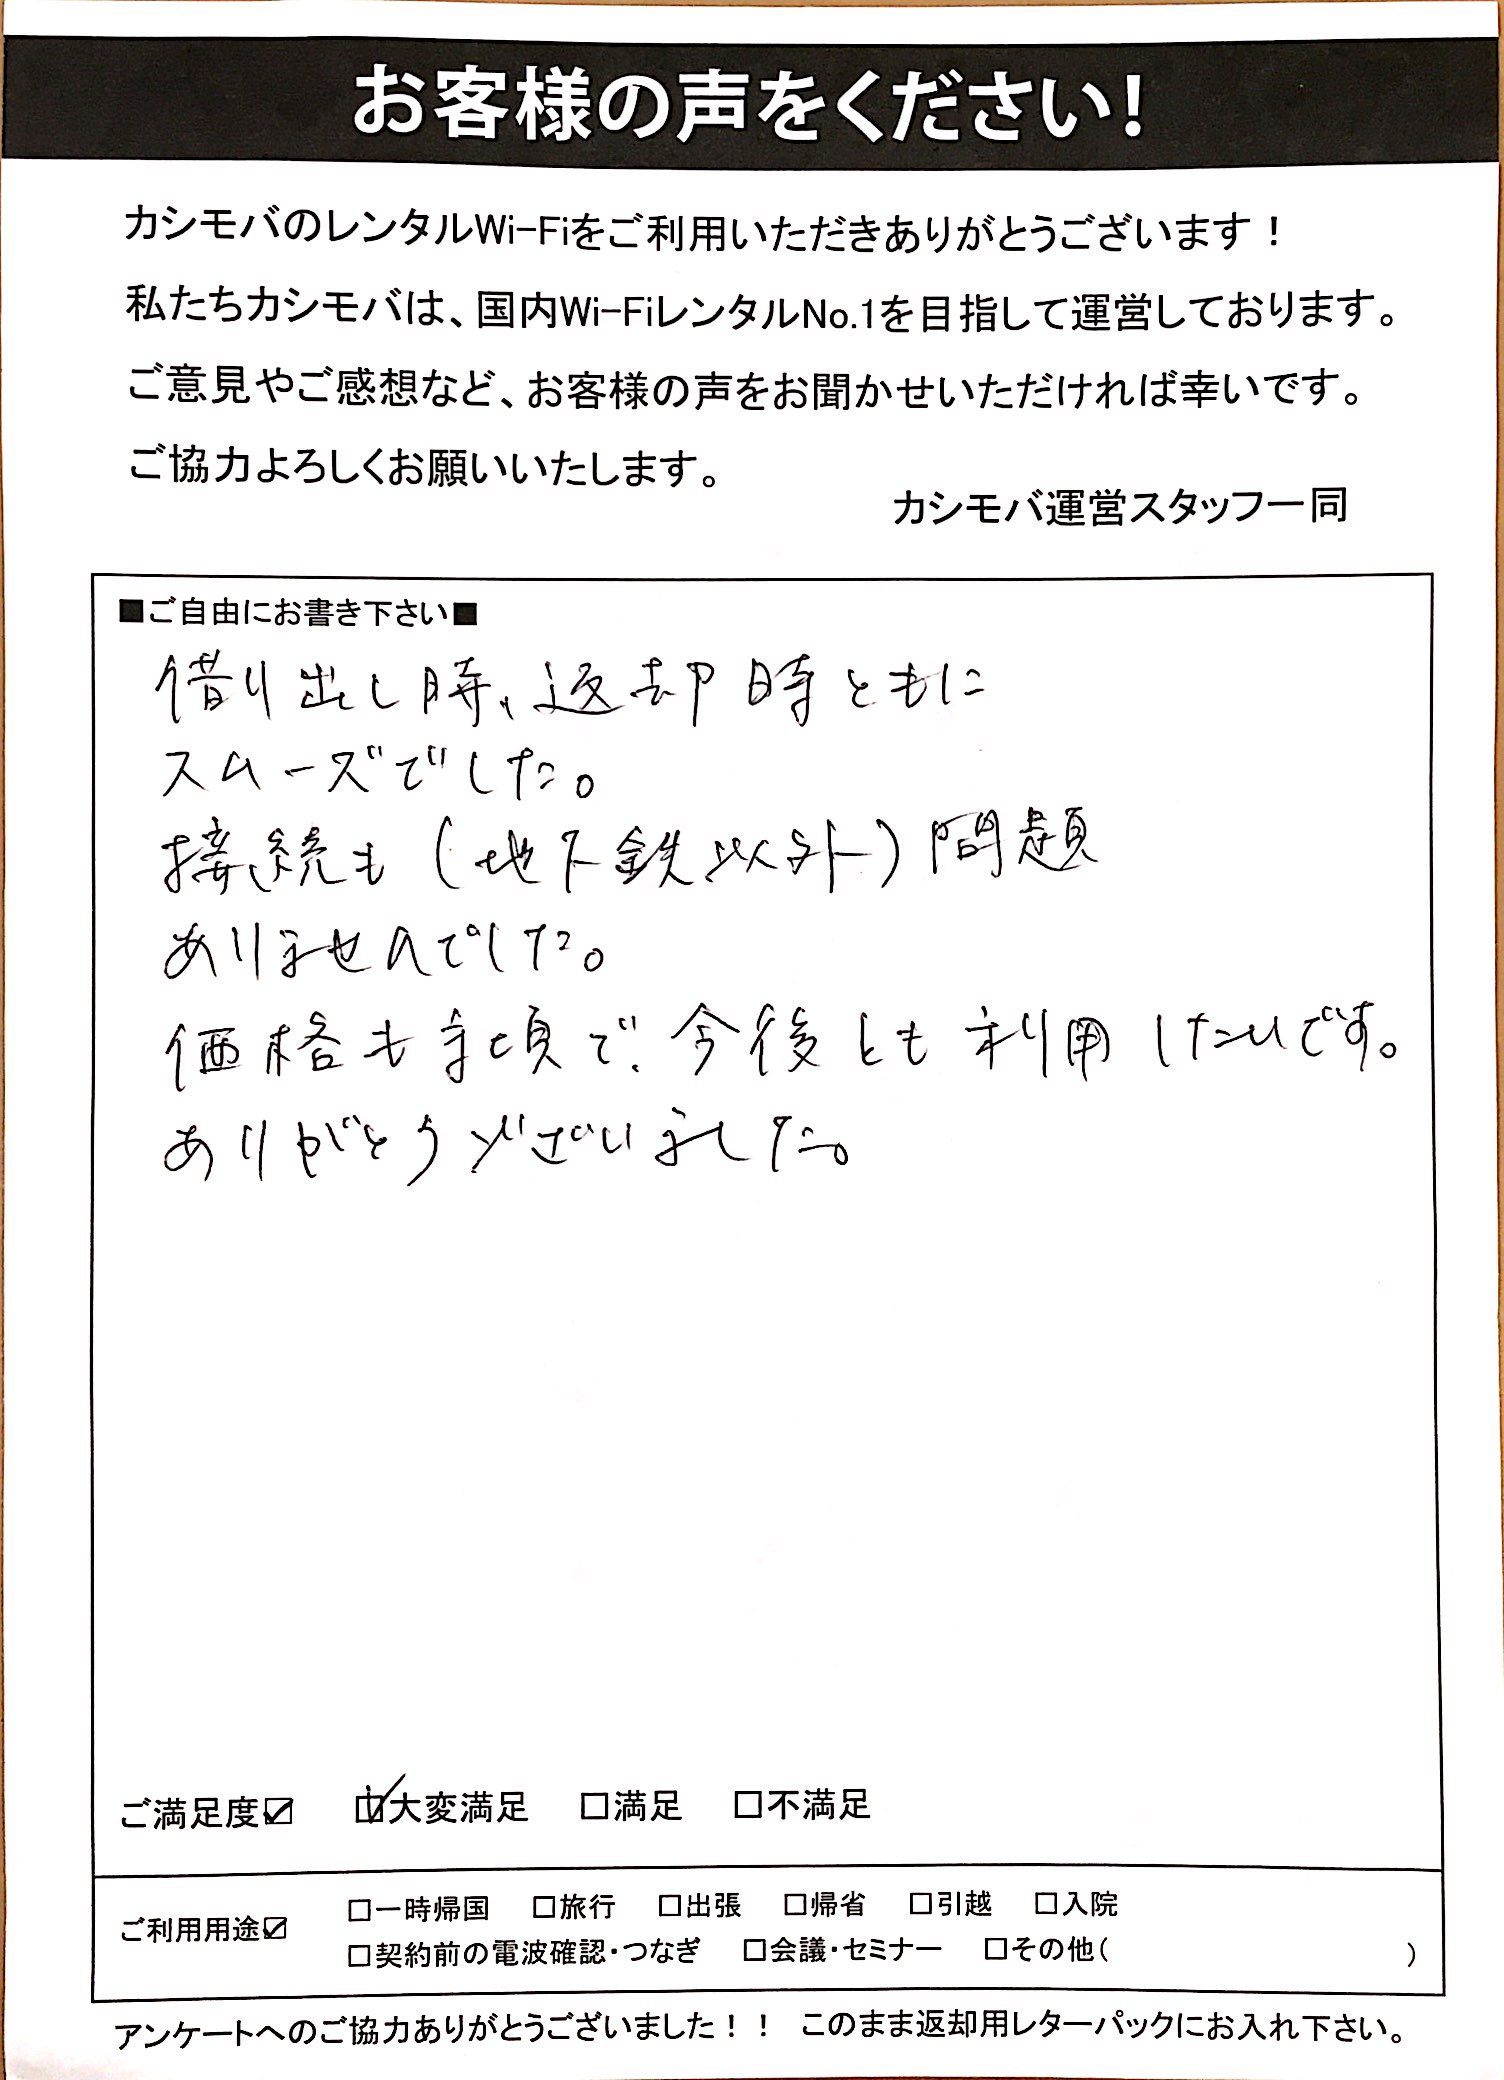 お客様の声をください!
カシモバのレンタルWi-Fiをご利用いただきありがとうございます！
私たちカシモバは、国内Wi-FiレンタルNo.1を目指して運営しております。
ご意見やご感想など、お客様の声をお聞かせいただければ幸いです。
ご協力よろしくお願いいたします。
カシモバ運営スタッフ一同
■ご自由にお書き下さい■
借り出し時、返却時ともに
スムーズでした。
接続も（地下鉄以外）問題
ありませんでした。
価格も手頃で、今後とも利用したいです。
ありがとうございました。
ご満足度☑ ☑大変満足 □満足 □不満足
ご利用用途☑ □一時帰国 □旅行 □出張 □帰省 □引越 □入院
□契約前の電波確認・つなぎ □会議・セミナー □その他（ ）
アンケートへのご協力ありがとうございました！！ このまま返却用レターパックにお入れ下さい。